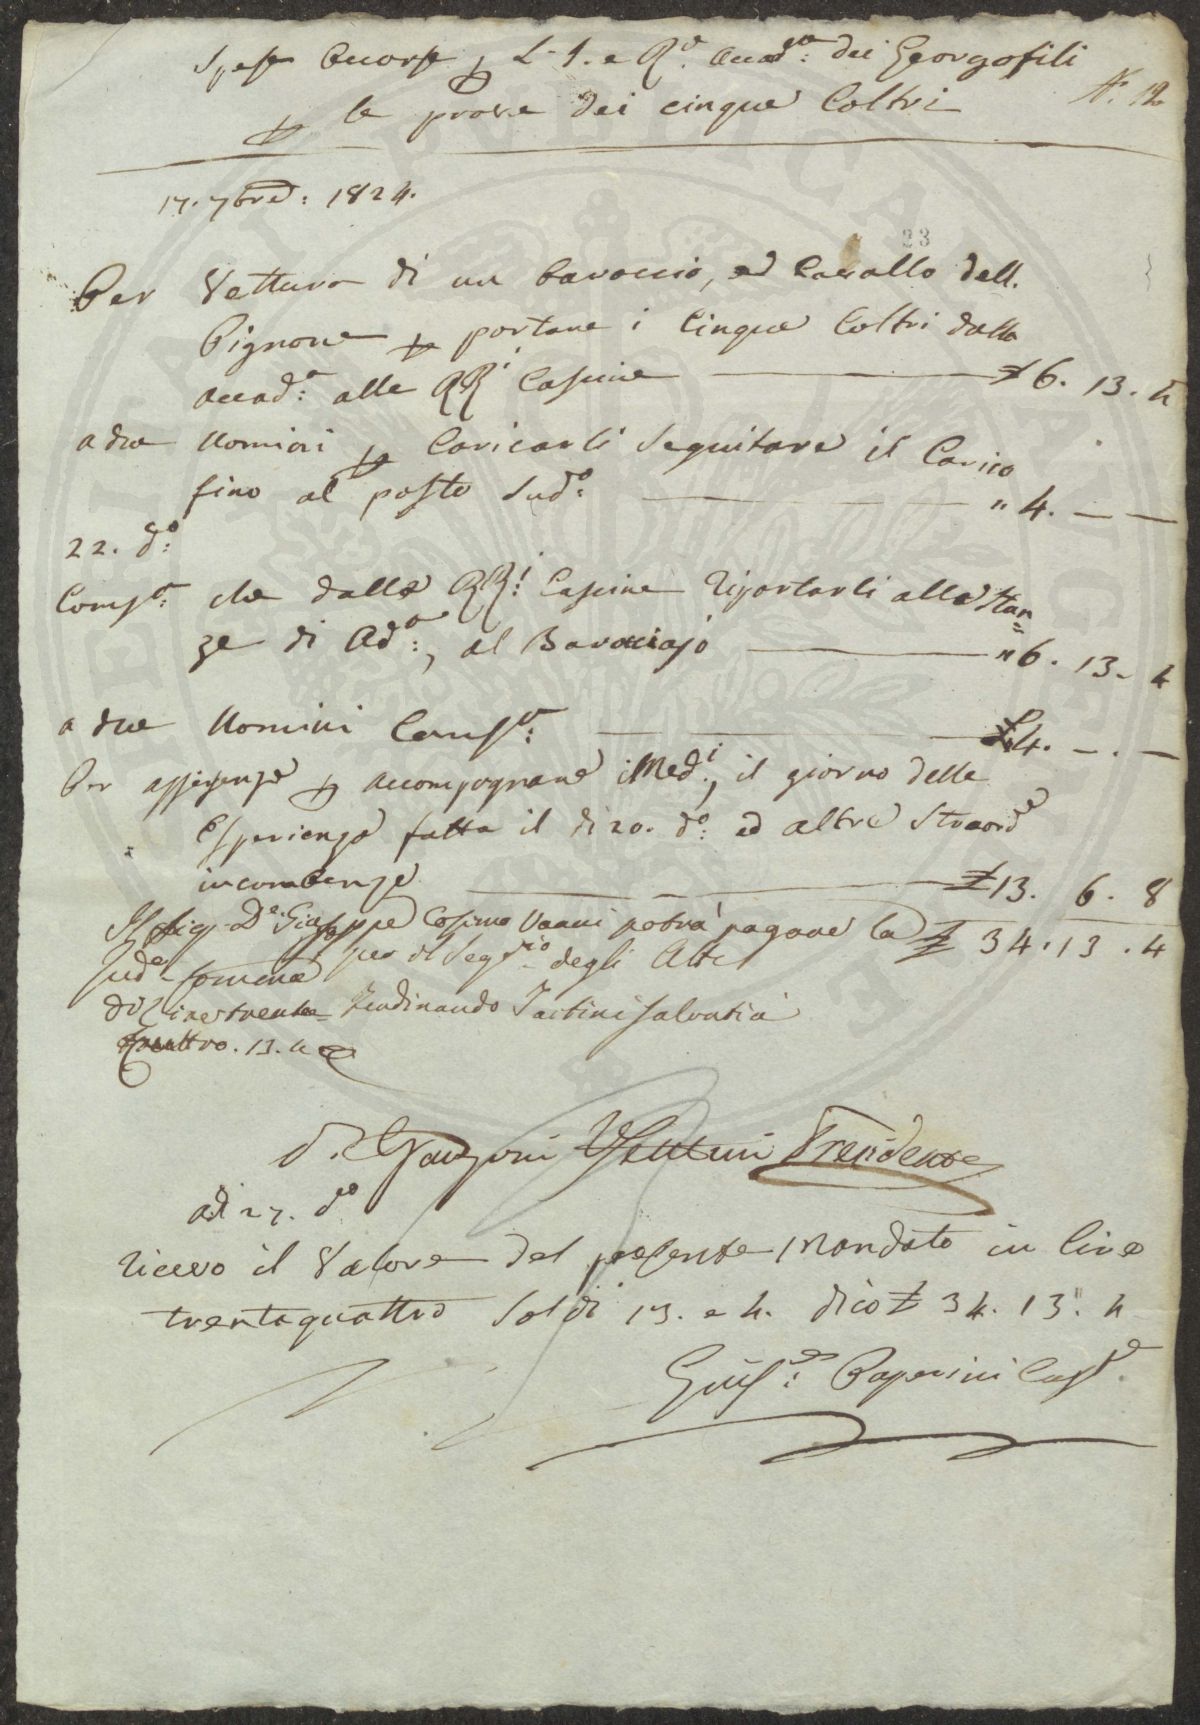 Spese Occorse p L'I. e R.e Accad.a: dei Georgofili
N.o 12
p le prove dei cinque Coltri
17. 7bre: 1824.
23
Per Vettura di un Baroccio, ed Cavallo dell.
Pignone p portare i Cinque Coltri dalla
Accad.a: alle RR.i Cascine £ 6. 13. 4
a due Uomini p Caricarli seguitare il Carico
fino al posto sud.o: " 4. — —
22. d.o:
Comp.a: che dalle RR.i: Cascine riportarli alle Stan=
ze di Ad.a:, al Barocciajo " 6. 13. 4
a due Uomini Comp.a: £ 4. — . —
Per assistenza p accompagnare i Med.i:, il giorno delle
Esperienze fatta il dì 20. d.o: ed altre Straord.e
incombenze £ 13. 6. 8
Il Sig. D.e Giuseppe Cosimo Vanni potrà pagare la £ 34. 13. 4
sud.a somma per il Seg.rio degli Atti
di Lire trenta= Ferdinando Tartini Salvatici
quattro. 13. 4
Presidente
adì 27. d.o
ricevo il Valore del presente Mandato in Lire
trentaquattro Soldi 13. e 4. dico £ 34. 13. 4
Gius.e: Paperini Cust.e